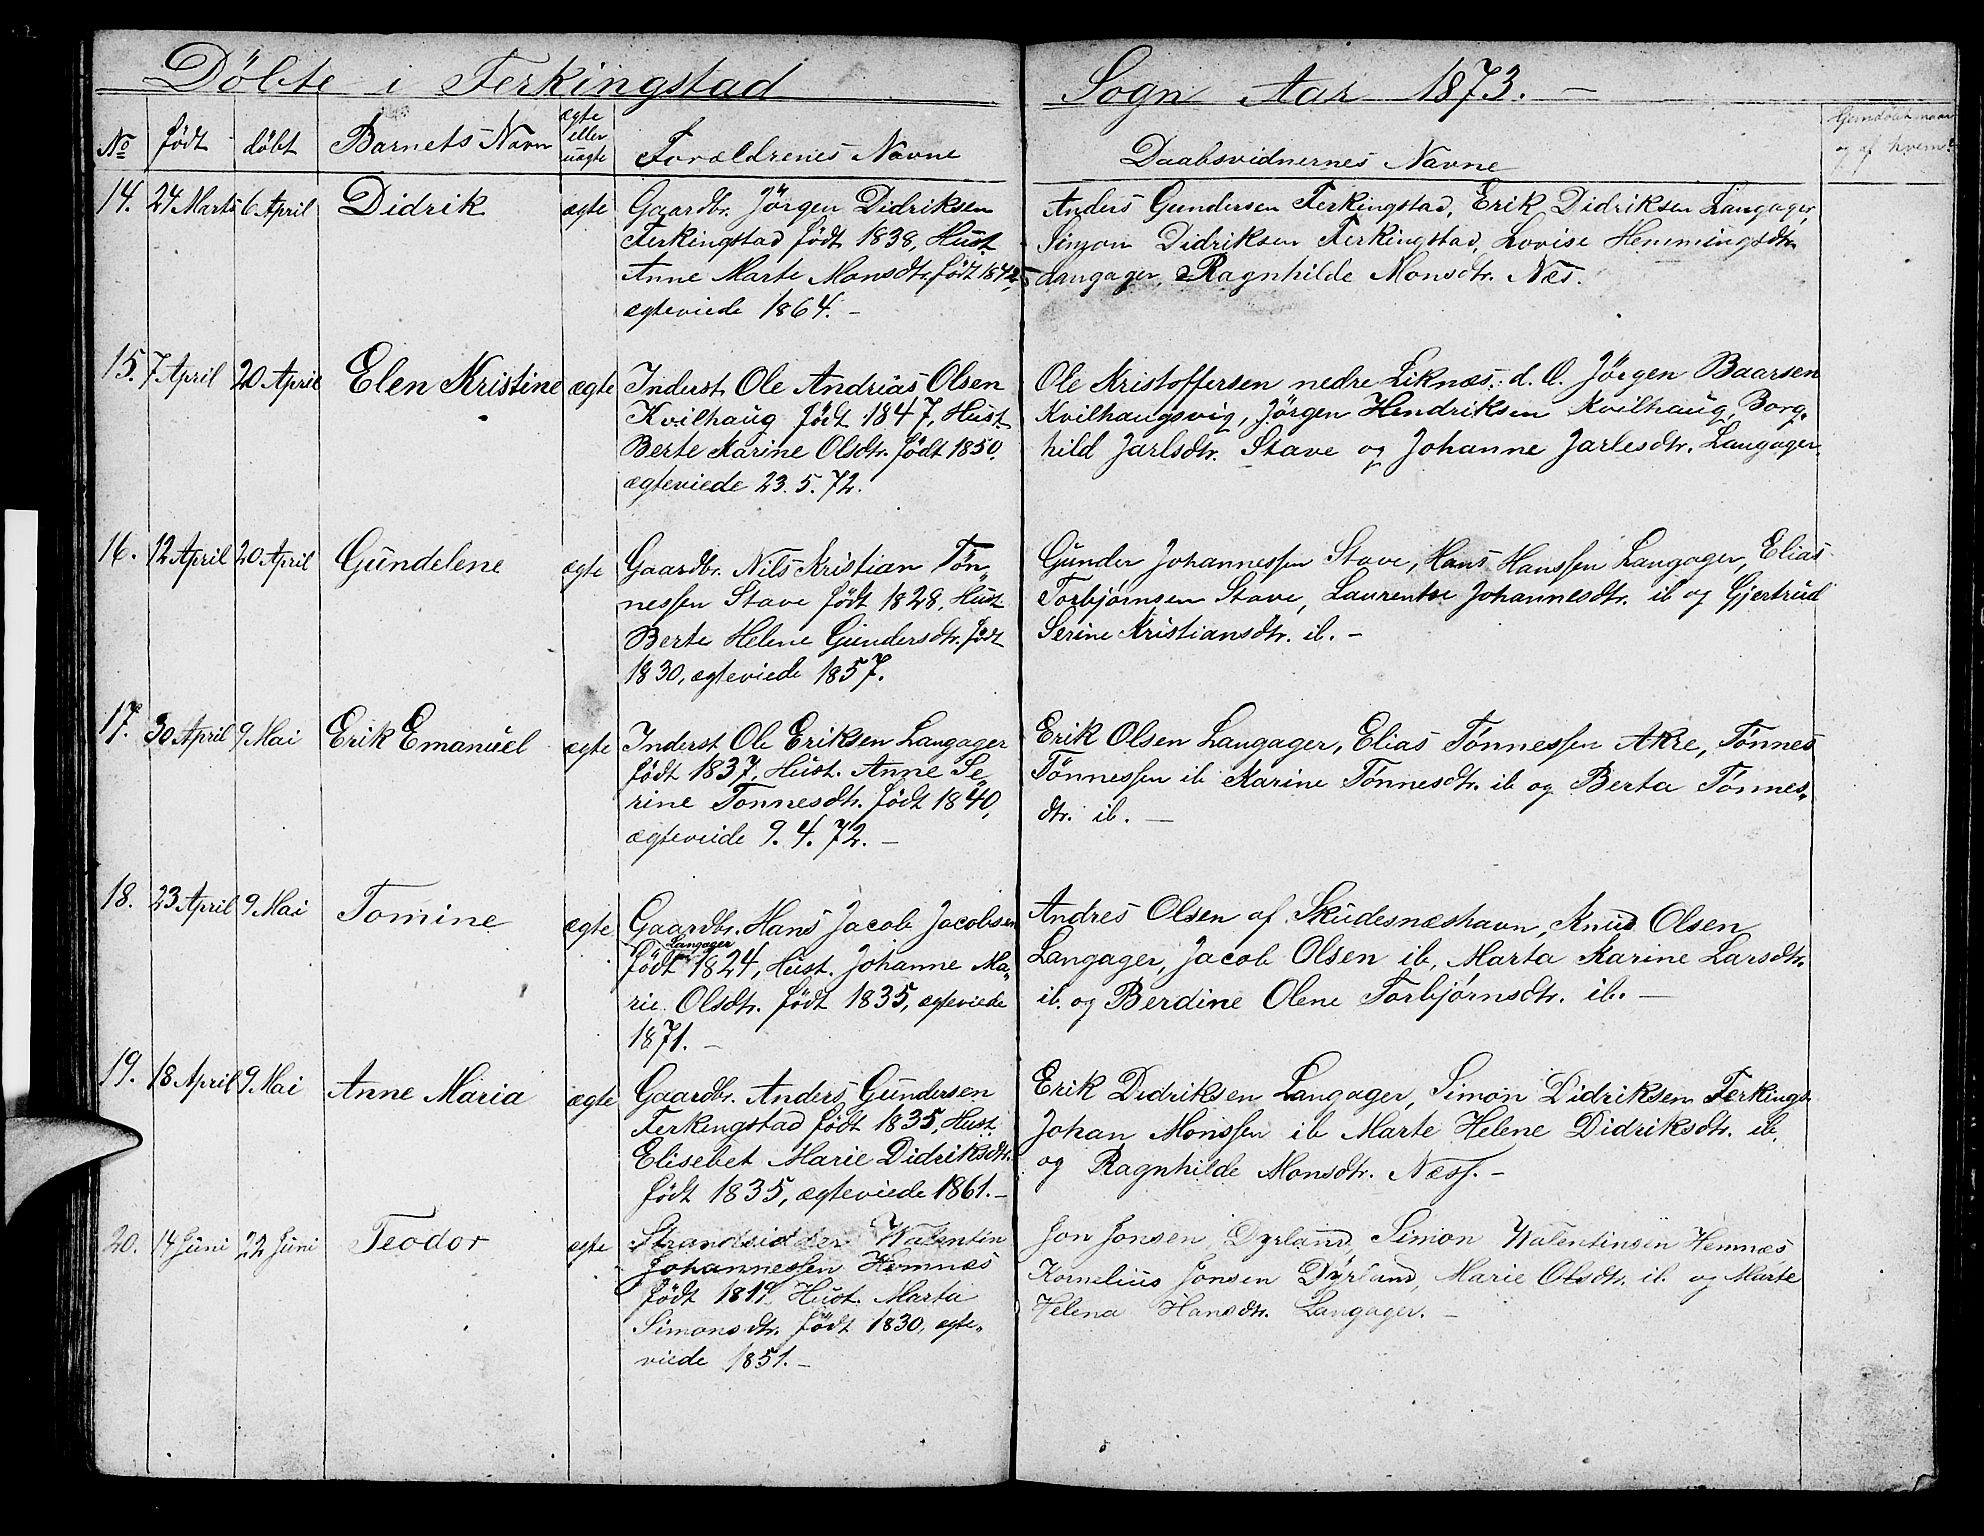 Döbte i Ferkingstad Sogn Aar 1873. –
No födt döbt Barnets Navn ægte eller uægte Forældrenes Navne Daabsvidnernes Navne
og af hvem?
14. 24 Marts 6 April Didrik ægte Gaardbr. Jörgen Didriksen
Ferkingstad födt 1838, Hust.
Anne Marte Monsdtr. födt 1842,
ægteviede 1864. –
Anders Gundersen Ferkingstad, Erik Didriksen Langager,
Simon Didriksen Ferkingstad, Lovise Hemmingsdtr.
Langager, Ragnhilde Monsdtr. Næs.
15. 7 April 20 April Elen Kristine ægte Inderst Ole Andrias Olsen
Kvilhaug födt 1847, Hust.
Berte Karine Olsdtr. födt 1850.
ægteviede 23. 5. 72.
Ole Kristoffersen nedre Liknæs, d. Æ. Jörgen Baarsen
Kvilhaugsvig, Jörgen Hendriksen Kvilhaug, Borg-
hild Jarlsdtr. Stave og Johanne Jarlesdtr. Langager.
16. 12 April 20 April Gundelene ægte Gaardbr. Nils Kristian Tön-
nessen Stave födt 1828, Hust.
Berte Helene Gundersdtr. födt
1830, ægteviede 1857.
Gunder Johannessen Stave, Hans Hanssen Langager, Elias
Torbjörnsen Stave, Laurentse Johannesdtr. ib og Gjertrud
Serine Kristiansdtr. ib. –
17. 30 April 9 Mai Erik Emanuel ægte Inderst Ole Eriksen Langager
födt 1837, Hust. Anne Se-
rine Tönnesdtr. födt 1840,
ægteviede 9. 4. 72. –
Erik Olsen Langager, Elias Tönnessen Akre, Tönnes
Tönnessen ib Karine Tönnesdtr. ib og Berta Tönnes-
dtr. ib. –
18. 23 April 9 Mai Tomine ægte Gaardbr. Hans Jacob Jacobsen
Langager
födt 1824, Hust. Johanne Ma-
rie Olsdtr. födt 1835, ægteviede
1871. –
Andres Olsen af Skudesnæshavn, Knud Olsen
Langager, Jacob Olsen ib, Marta Karine Larsdtr.
ib. og Berdine Olene Torbjörnsdtr. ib. –
19. 18 April 9 Mai Anne Maria ægte Gaardbr. Anders Gundersen
Ferkingstad födt 1835, Hust.
Elisebet Marie Didriksdtr.
födt 1835, ægteviede 1861. –
Erik Didriksen Langager, Simon Didriksen Ferkings.
Johan Monssen ib Marte Helene Didriksdtr. ib.
og Ragnhilde Monsdtr. Næss. –
20. 14 Juni 22 Juni Teodor ægte Strandsidder Walentin
Johannessen Hemnæs
födt 1819 Hust. Marta
Simonsdtr. födt 1830, ægte-
viede 1851. –
Jon Jonsen Dyrland, Simon Walentinsen Hemnæs
Kornelius Jonsen Dyrland, Marie Olsdtr. ib. og Marte
Helena Hansdtr. Langager. –